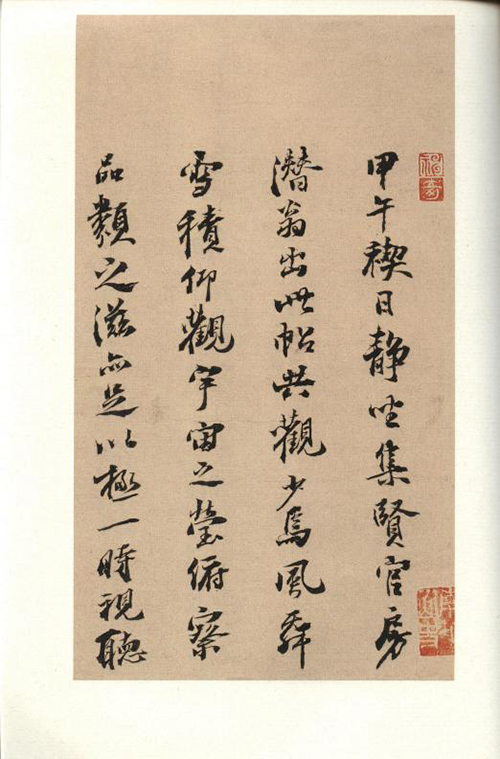 甲午禊日静坐集賢官房
潜翁出此帖共觀少焉風舞
雪積仰觀宇宙之瑩俯察
品類之滋亦足以極一時視聽